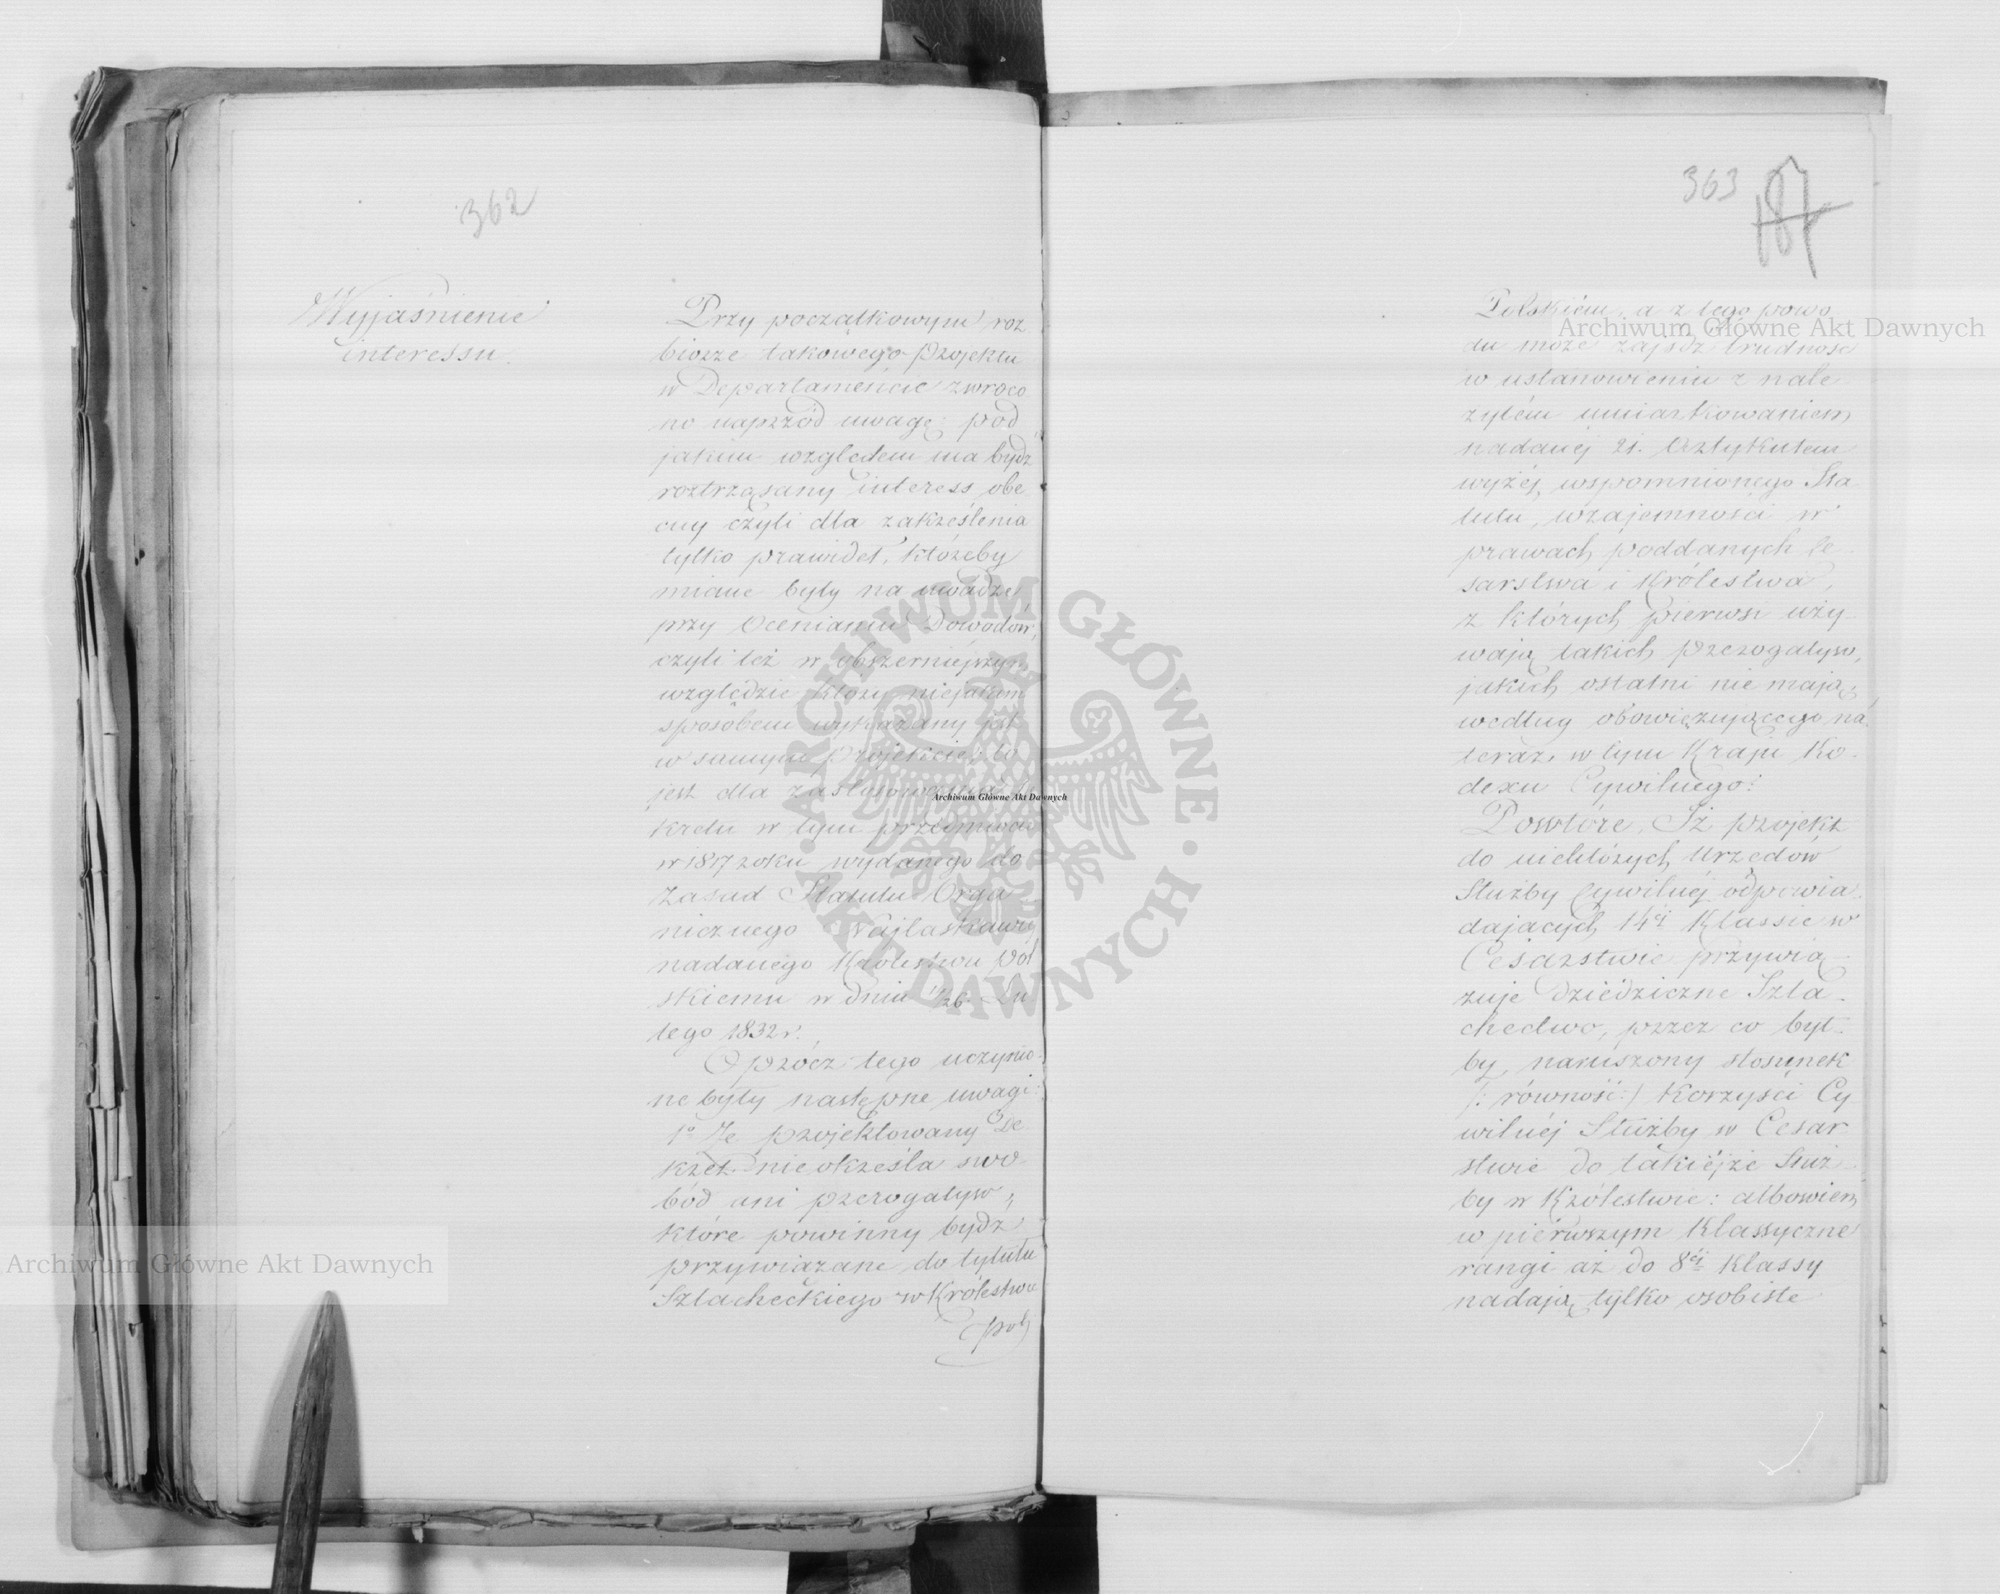 362
Wyjaśnienie
interessu.
Przy początkowym roz
biorze takowego projektu
w Departamencie zwróco
no naprzód uwagę: pod
jakim względem ma bydź
roztrząsany interess obe
cny czyli dla zakreślenia
tylko prawideł, któreby
miane były na uwadze
przy Ocenianiu Dowodów,
czyli też w obszerniejszym
względzie który niejakim
sposobem wykazany jest
w samym Projekcie, to
jest dla zastosowania
kretu w tym przedmiocie
w 1817 roku wydanego do
zasad Statutu Orga
nicznego Najłaskawiej
nadanego Królestwu Pol
skiemu w dniu 14/26 Lu
tego 1832 r.
Oprócz tego uczynio
ne były następne uwagi:
1o Że projektowany De
kret nie określa swo
bód ani prerogatyw,
które powinny bydź
przywiązane do tytułu
Szlacheckiego w Królestwie
Pol
363
187
Polskiém, a z tego powo
du może zajśdź trudność
w ustanowieniu z nale
żytém umiarkowaniem
nadanéj 21. Artykułem
wyżéj wspomnionego Sta
tutu, wzajemności w
prawach poddanych Ce
sarstwa i Królestwa,
z których pierwsi uży
wają takich prerogatyw,
jakich ostatni nie mają,
według obowiązującego na
teraz w tym Kraju Ko
dexu Cywilnego:
Powtóre, Iż projekt
do niektórych Urzędów
Służby Cywilnéj odpowia
dających 14éj Klassie w
Cesarstwie przywią
zuje Dziedziczne Szla
chectwo, przez co był
by naruszony stosunek
/: równość :/ Korzyści Cy
wilnéj Służby w Cesar
stwie do takiéjże Służ
by w Królestwie: albowiem
w piérwszym Klassyczne
rangi aż do 8éj Klassy
nadają tylko osobiste
Archiwum Główne Akt Dawnych
Archiwum Główne Akt Dawnych
Archiwum Główne Akt Dawnych
ARCHIWUM GŁÓWNE · AKT DAWNYCH ·